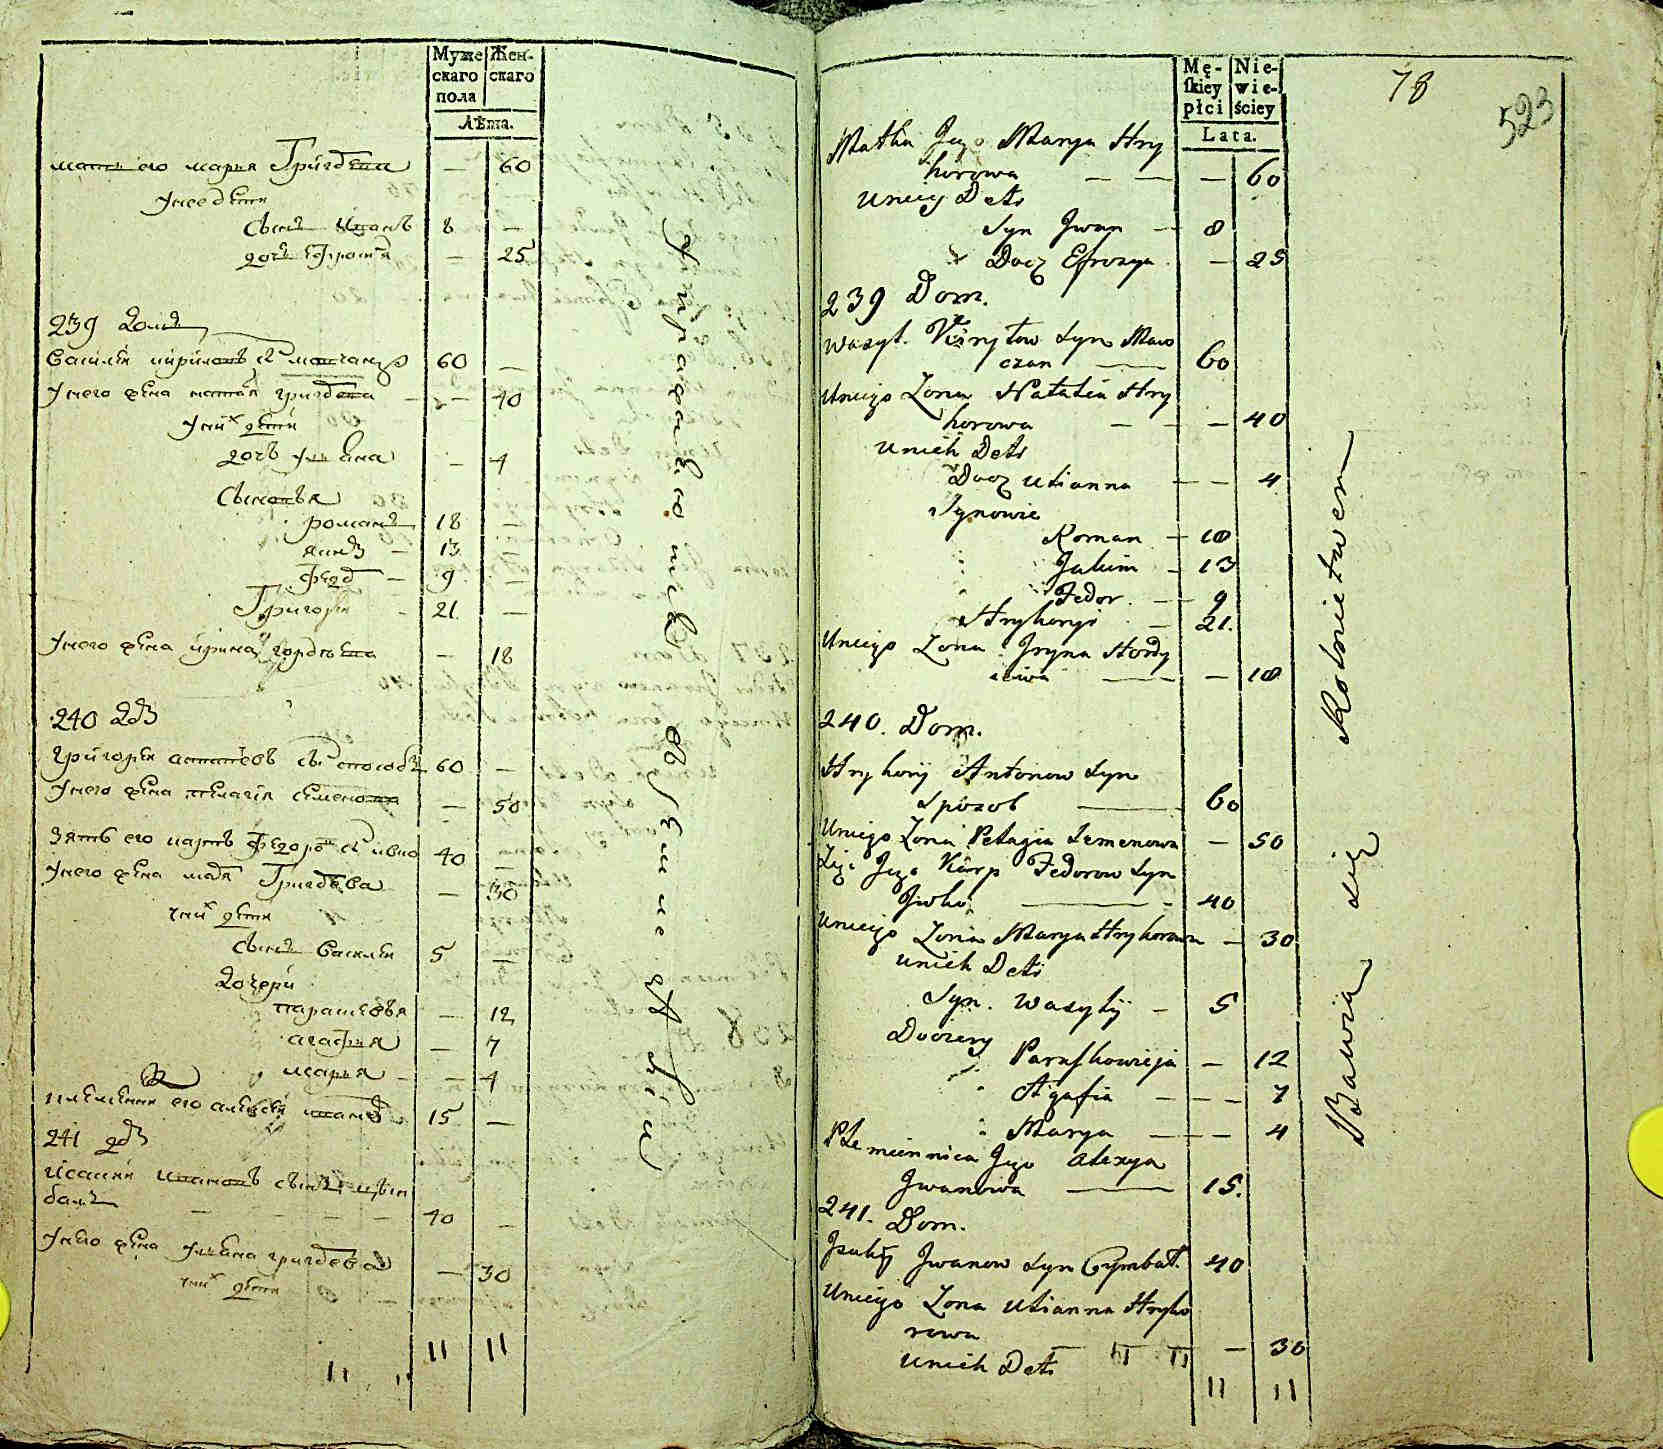 Муже
скаго
пола
Жен-
скаго
Лѣта.
мать его марья Григорева — 60
У нее дети
Сынъ Иванъ 8 —
дочь Ефросиня — 25
239 Домъ
Василiй кириловъ сынъ мовчанъ 60 —
У него жена наталiя григорева — 40
У них дети
дочь улiяна — 4
Сыновья
романъ 18 —
якимъ — 13
Федоръ — 9 —
Григорiй — 21 —
У него жена ирина гордѣева — 18
240 Домъ
Григорiй антоновъ сынъ способъ 60 —
У него жена пелагiя семенова — 50
Зять его карпъ федоровъ сынъ 40 —
У него жена марiя Григорева — 30
У них дети
Сынъ Василiй 5 —
Дочери
парасковья — 12
агафия — 7
марья — 4
племенник его алексей ивановъ 15 —
241 домъ
Исакий ивановъ сынъ цым
балъ — 40 —
У него жена улияна григорева — 30
у них дети
11 11
Mę-
ſkiey
płci
Nie-
wie-
ściey
Lata.
78
523
Matka Jego Marya Hry
horowa — — — 60
Uniey Deti
Syn Jwan — 8
Docz Efrozya — 25
239 Dom.
Wasyl. Kirylow Syn Mow
czan — 60
Uniego Zona Natalia Hry
horowa — — — 40
Unich Deti
Docz Ulianna — — 4
Synowie
Roman — 18
Jakim — 13
Fedor — 9
Hryhoryi — 21.
Uniego Zona Jryna Hordy
iowa — — 18
240. Dom.
Hryhorij Antonow Syn
Sposob — 60
Uniego Zona Pelagia Semenowa — 50
Zięć Jego Karp Fedorow Syn
— 40
Uniego Zona Marya Hryhorowa — 30
Unich Deti
Syn. Wasylij — 5
Doczery
Paraſkowieja — 12
Agafia — — — 7
Marya — — — 4
Plemiennica Jego Alexya
Jwanowa — 15.
241. Dom.
Jsakij Jwanow Syn Cymbał. 40
Uniego Zona Ulianna Hryho
rowa — 30
Unich Deti 11 11
11 11
Bawia się Rolnictwem